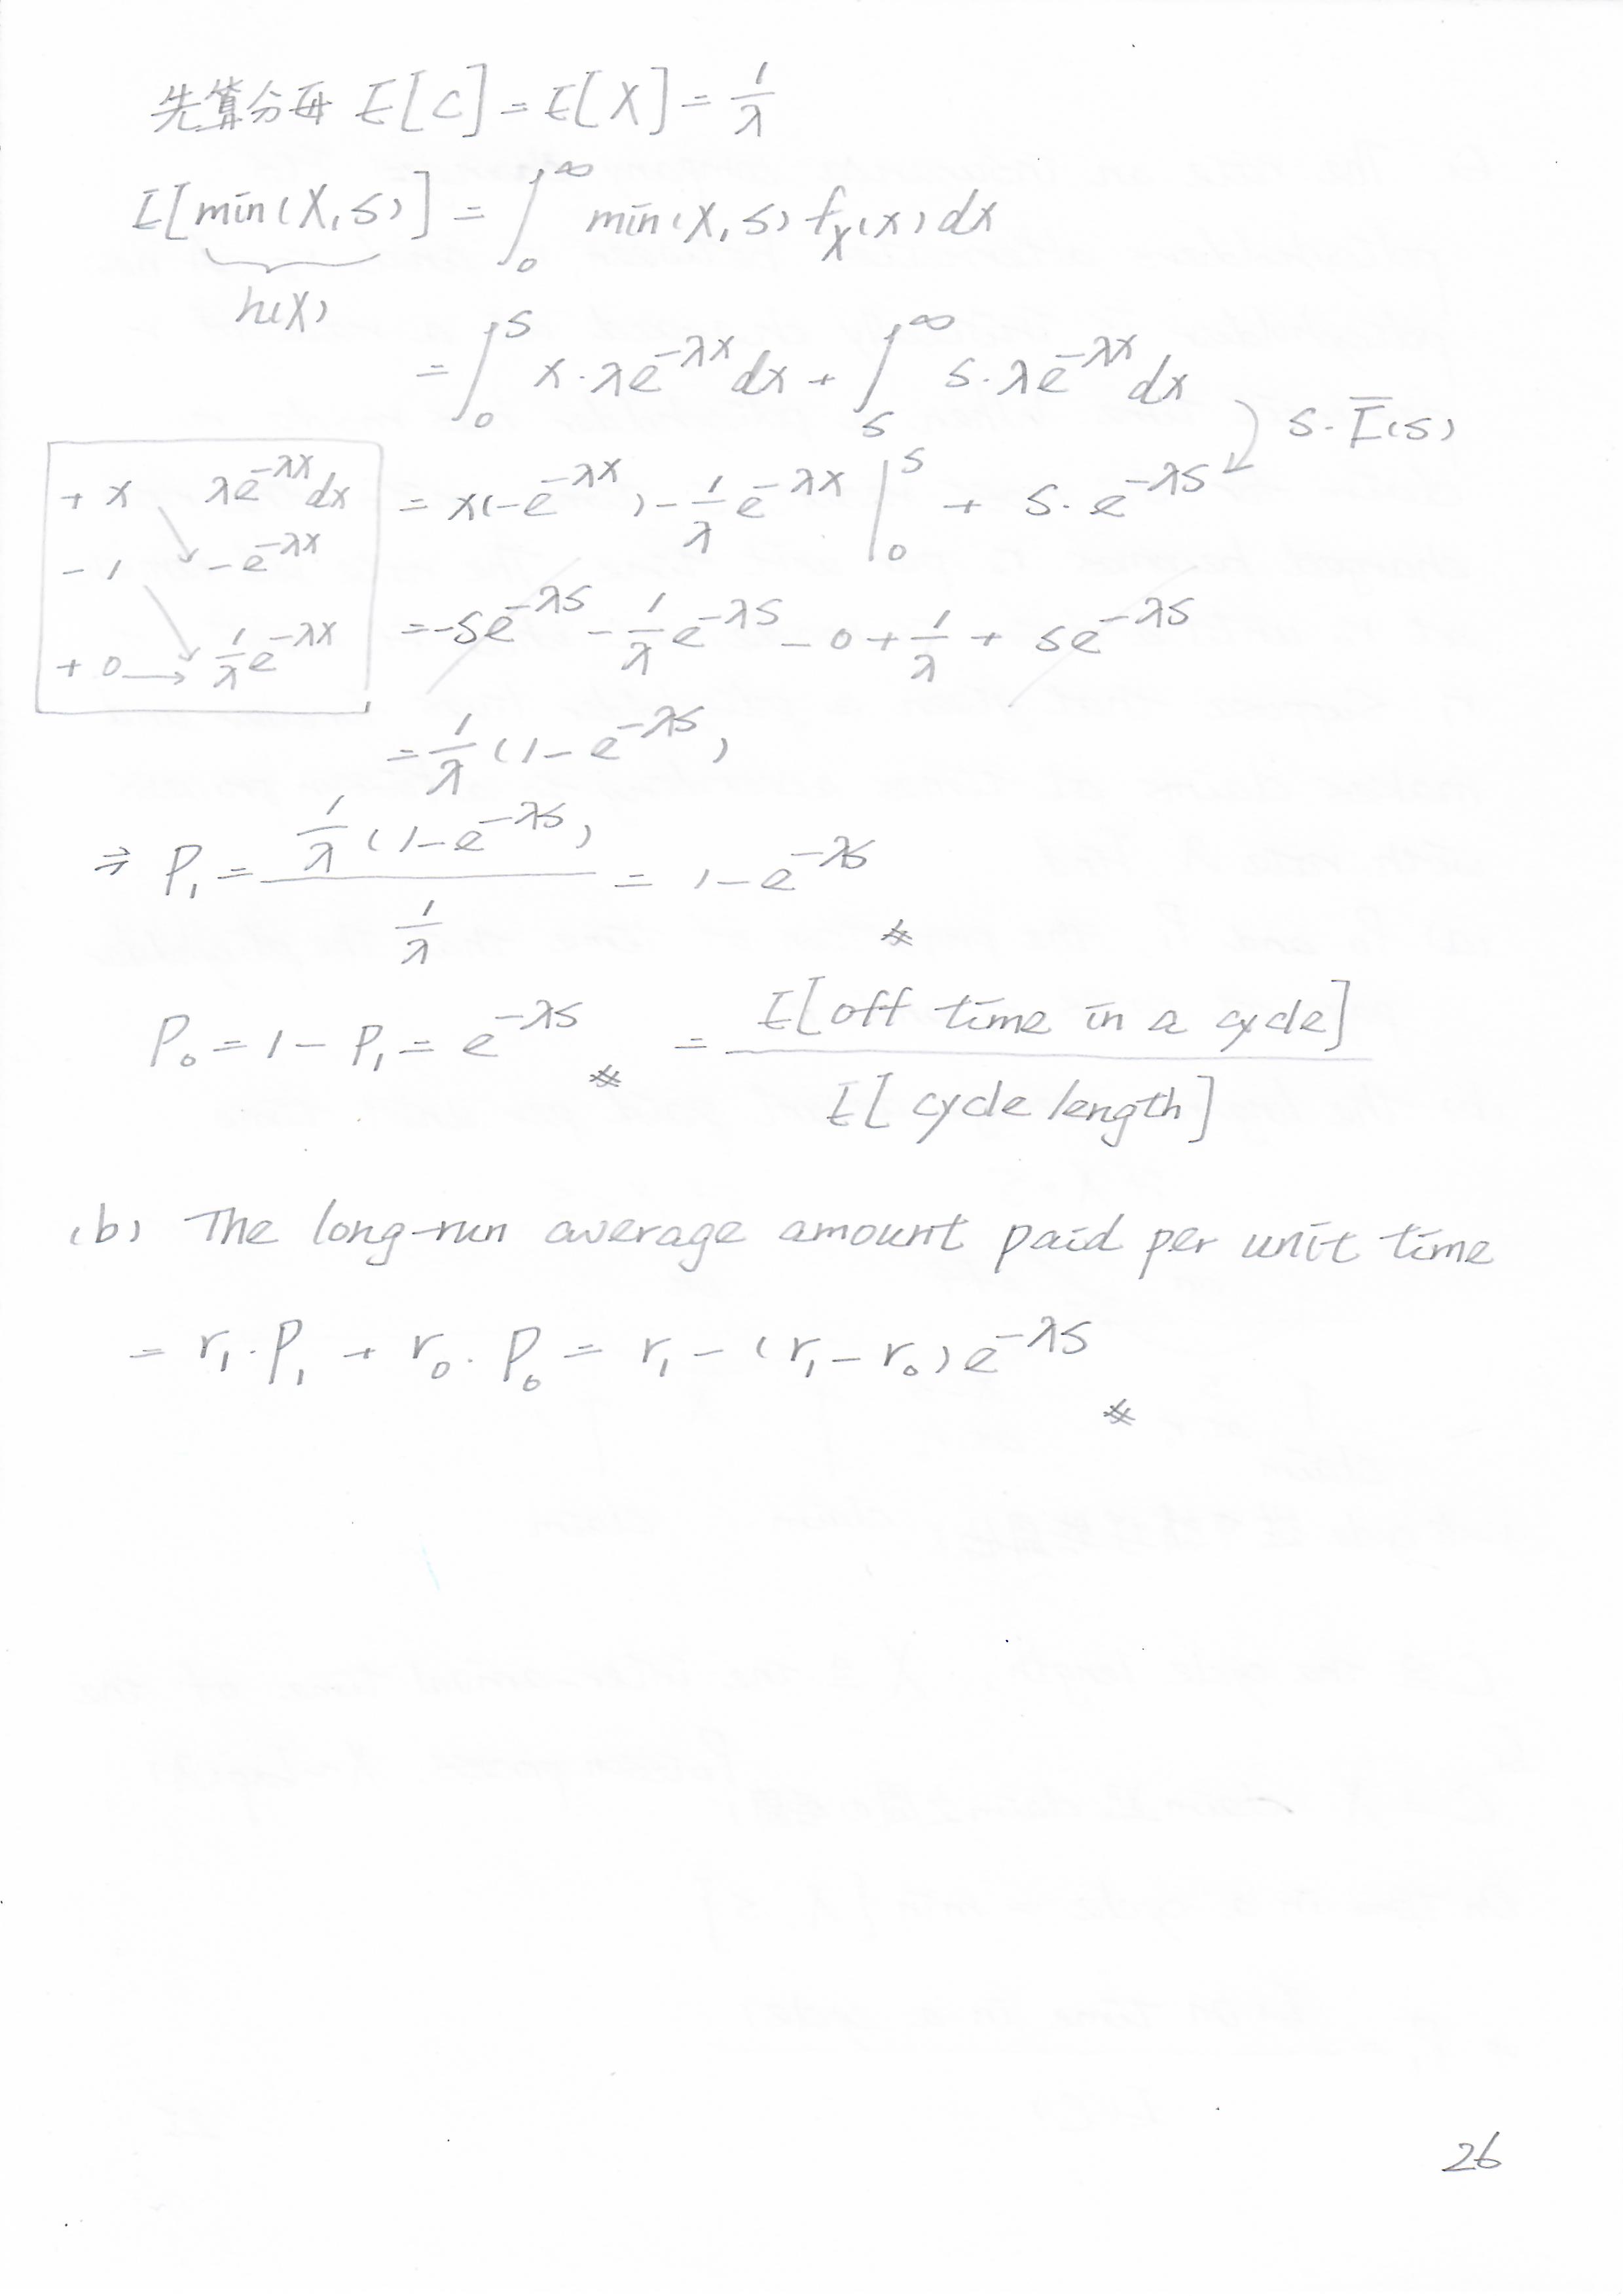 先算分母 E[C] = E[X] = 1/λ
E[min(X,s)] = ∫₀^∞ min(X,s) f_X(x) dx
h(X)
= ∫₀^s x·λe^{-λx} dx + ∫_s^∞ s·λe^{-λx} dx
s·F̅(s)
+ x λe^{-λx}dx
= x(-e^{-λx}) - 1/λ e^{-λx} |₀^s + s·e^{-λs}
- 1 -e^{-λx}
= -se^{-λs} - 1/λ e^{-λs} - 0 + 1/λ + se^{-λs}
+ 0 → 1/λ e^{-λx}
= 1/λ (1-e^{-λs})
⇒ P₁ = (1/λ (1-e^{-λs})) / (1/λ) = 1-e^{-λs} #
P₀ = 1 - P₁ = e^{-λs} # = E[off time in a cycle] / E[cycle length]
(b) The long-run average amount paid per unit time
= r₁·P₁ + r₀·P₀ = r₁ - (r₁ - r₀)e^{-λs} #
26